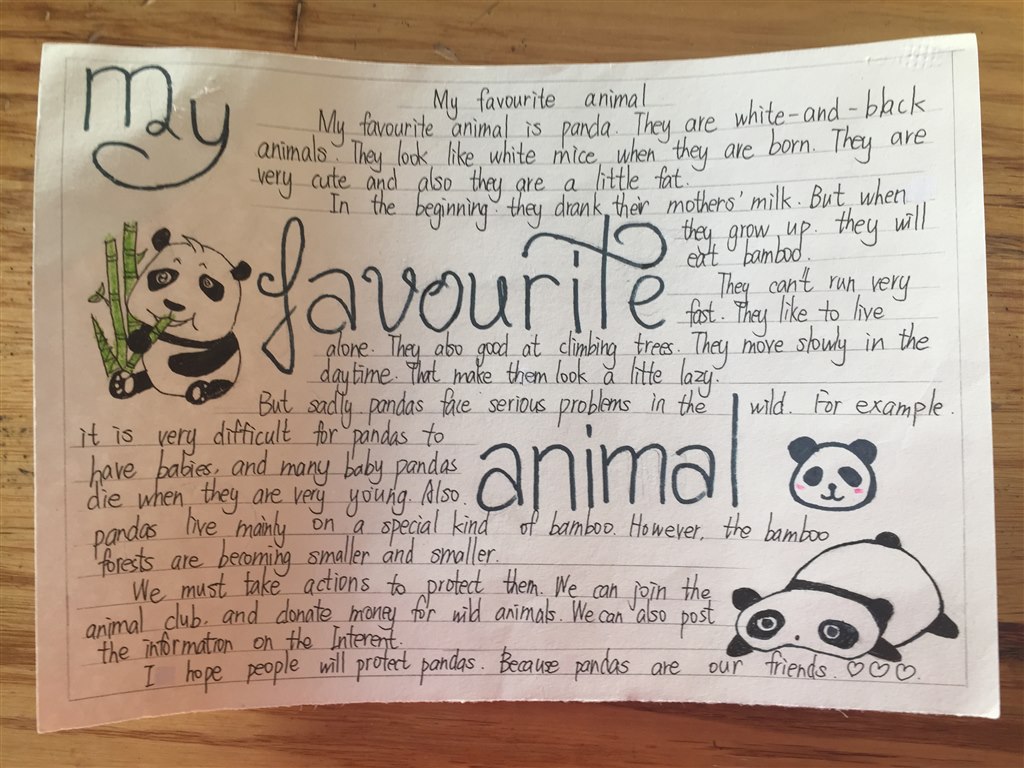 My
My favourite animal
My favourite animal is panda. They are white-and-black
animals. They look like white mice when they are born. They are
very cute and also they are a little fat.
In the beginning. they drank their mothers' milk. But when
they grow up. they will
eat bamboo.
favourite
They can't run very
fast. They like to live
alone. They also good at climbing trees. They move slowly in the
daytime. That make them look a little lazy.
But sadly pandas face serious problems in the wild. For example.
it is very difficult for pandas to
have babies. and many baby pandas
die when they are very young. Also.
animal
pandas live mainly on a special kind of bamboo. However, the bamboo
forests are becoming smaller and smaller.
We must take actions to protect them. We can join the
animal club. and donate money for wild animals. We can also post
the information on the Interent.
I hope people will protect pandas. Because pandas are our friends. ♡♡♡